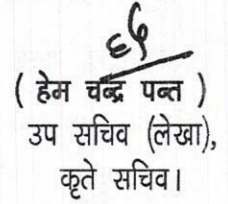 ( हेम चन्द्र पन्त )
उप सचिव (लेखा),
कृते सचिव।